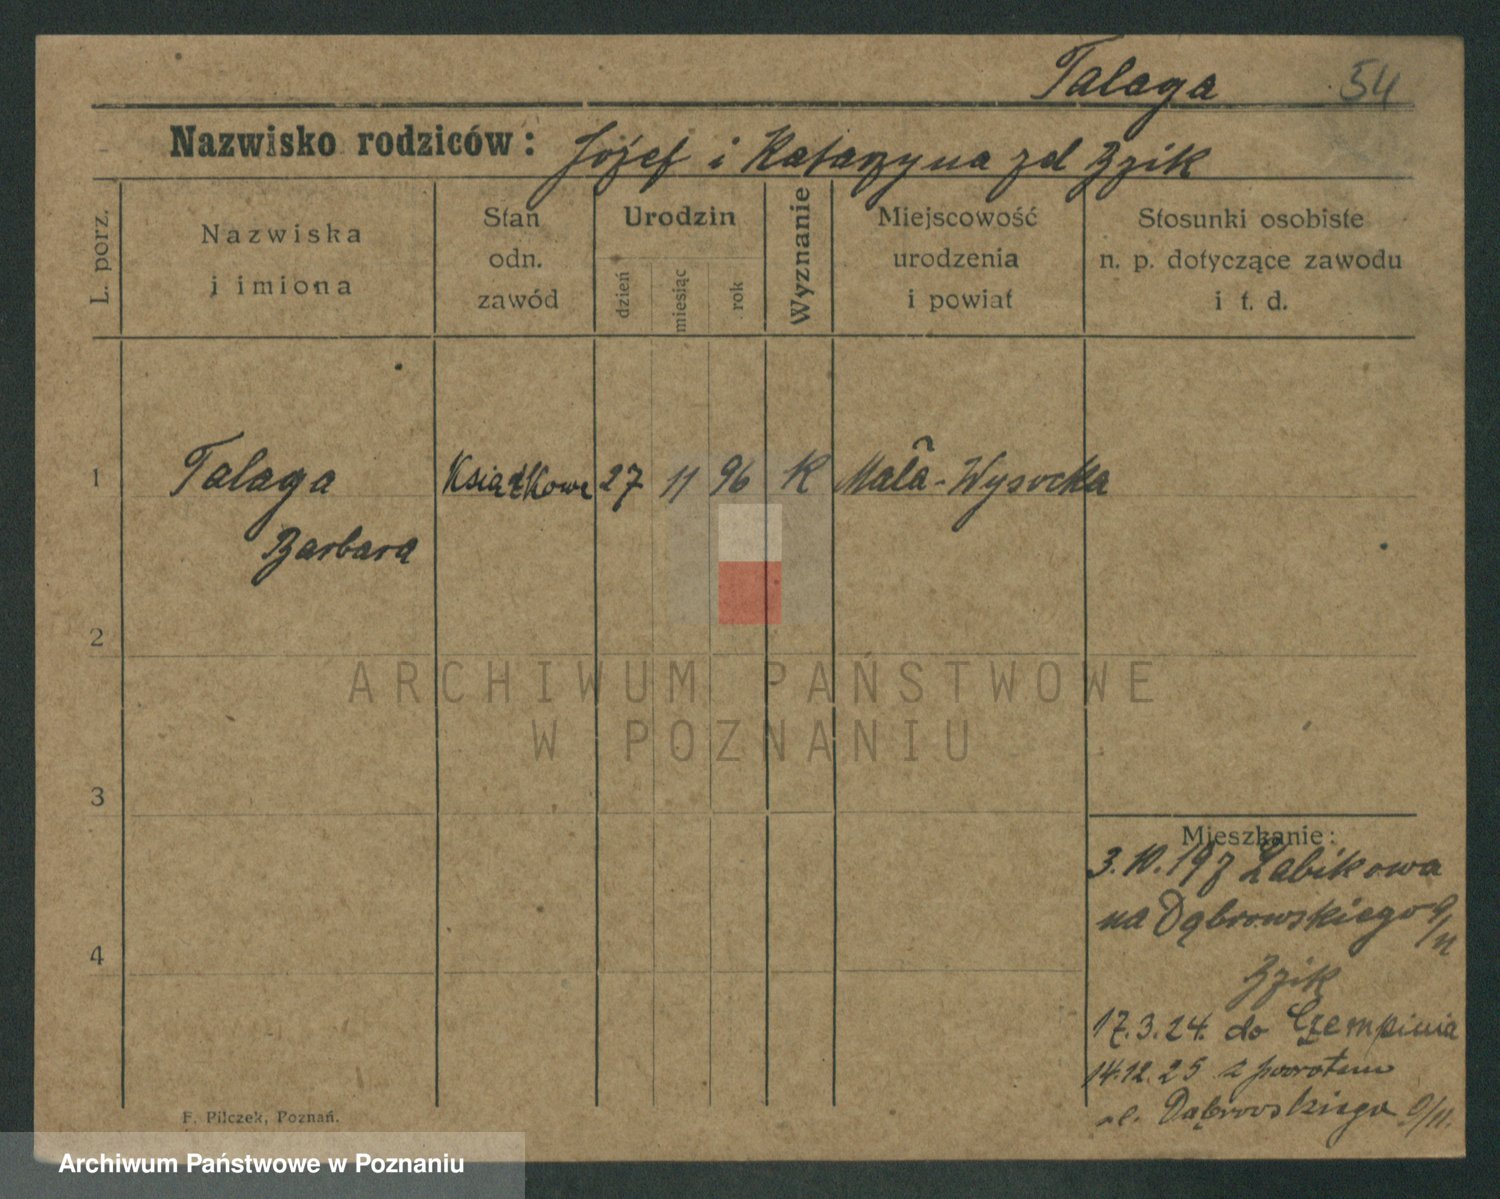 Talaga 54
Nazwisko rodziców: Józef i Katarzyna zd Bzik
L. porz.
Nazwiska
i imiona
Stan
odn.
zawód
Urodzin
dzień
miesiąc
rok
Wyznanie
Miejscowość
urodzenia
i powiat
Stosunki osobiste
n. p. dotyczące zawodu
i t. d.
1 Talaga Książkowa 27 11 96 K Mała-Wysocka
Barbara
2
3
4
ARCHIWUM PAŃSTWOWE
W POZNANIU
Mieszkanie:
3.10.197 Żabikowa
na Dąbrowskiego 9/11
Bzik
17.3.24. do Czempinia
14.12.25 z powrotem
ul. Dąbrowskiego 9/11.
F. Pilczek, Poznań.
Archiwum Państwowe w Poznaniu